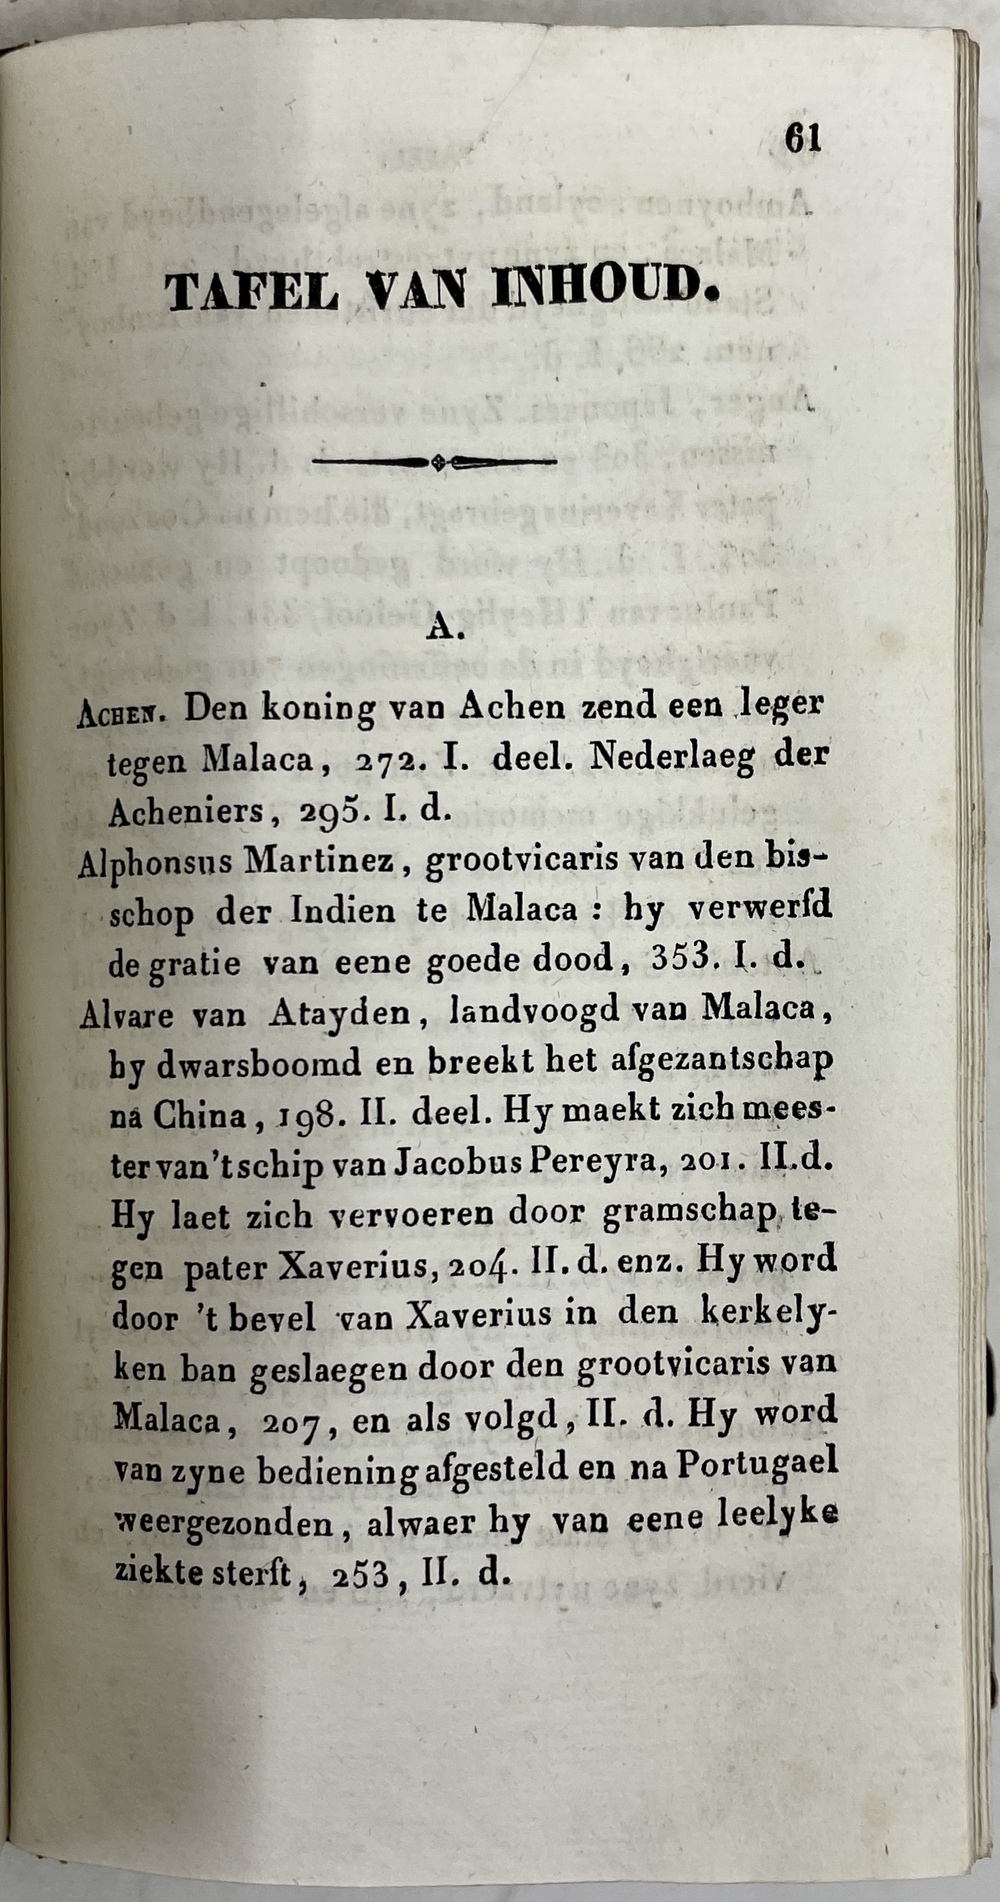 61
TAFEL VAN INHOUD.
A.
ACHEN. Den koning van Achen zend een leger
tegen Malaca, 272. I. deel. Nederlaeg der
Acheniers, 295. I. d.
Alphonsus Martinez, grootvicaris van den bis-
schop der Indien te Malaca : hy verwerfd
de gratie van eene goede dood, 353. I. d.
Alvare van Atayden, landvoogd van Malaca,
hy dwarsboomd en breekt het afgezantschap
ná China, 198. II. deel. Hy maekt zich mees-
ter van 't schip van Jacobus Pereyra, 201. II. d.
Hy laet zich vervoeren door gramschap te-
gen pater Xaverius, 204. II. d. enz. Hy word
door 't bevel van Xaverius in den kerkely-
ken ban geslaegen door den grootvicaris van
Malaca, 207, en als volgd, II. d. Hy word
van zyne bediening afgesteld en na Portugael
weergezonden, alwaer hy van eene leelyke
ziekte sterft, 253, II. d.